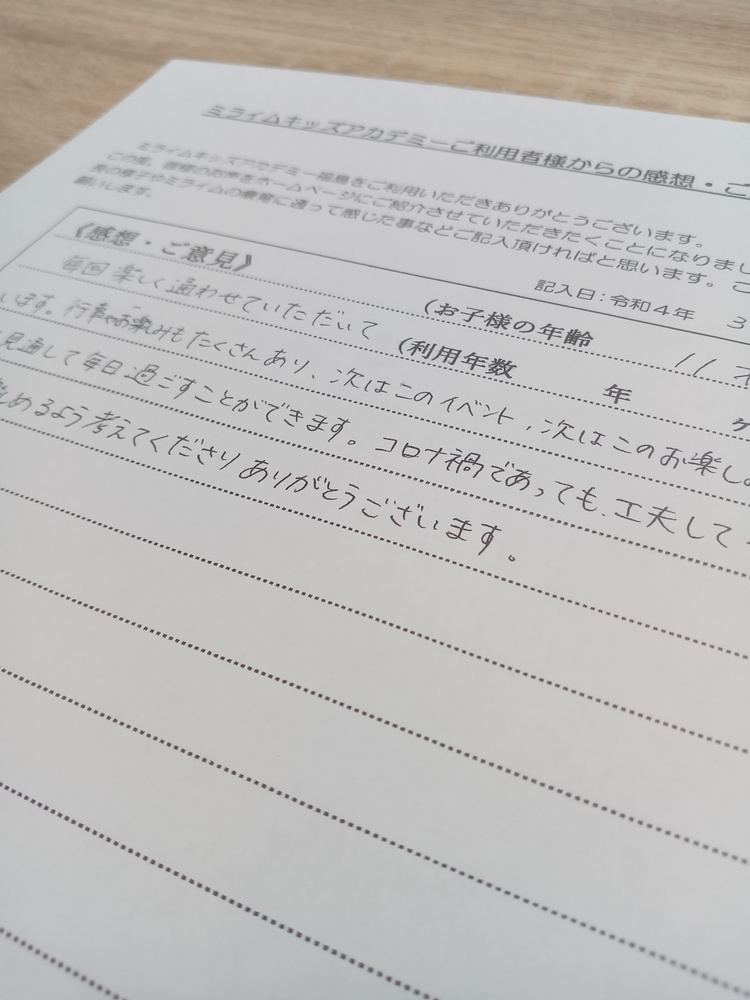 ミライムキッズアカデミーご利用者様からの感想・ご
ミライムキッズアカデミー福島をご利用いただきありがとうございます。
この度、皆様のお声をホームページにご紹介させていただきたくことになりまし
児の様子やミライムの療育に通って感じた事などご記入頂ければと思います。ご
願いします。
記入日：令和４年 3
《感想・ご意見》
(お子様の年齢 11 才
(利用年数 年 ケ
毎回楽しく通わせていただいて
います。行事やお楽しみもたくさんあり、次はこのイベント、次はこのお楽し
見通して毎日過ごすことができます。コロナ禍であっても、工夫して
しめるよう考えてくださりありがとうございます。